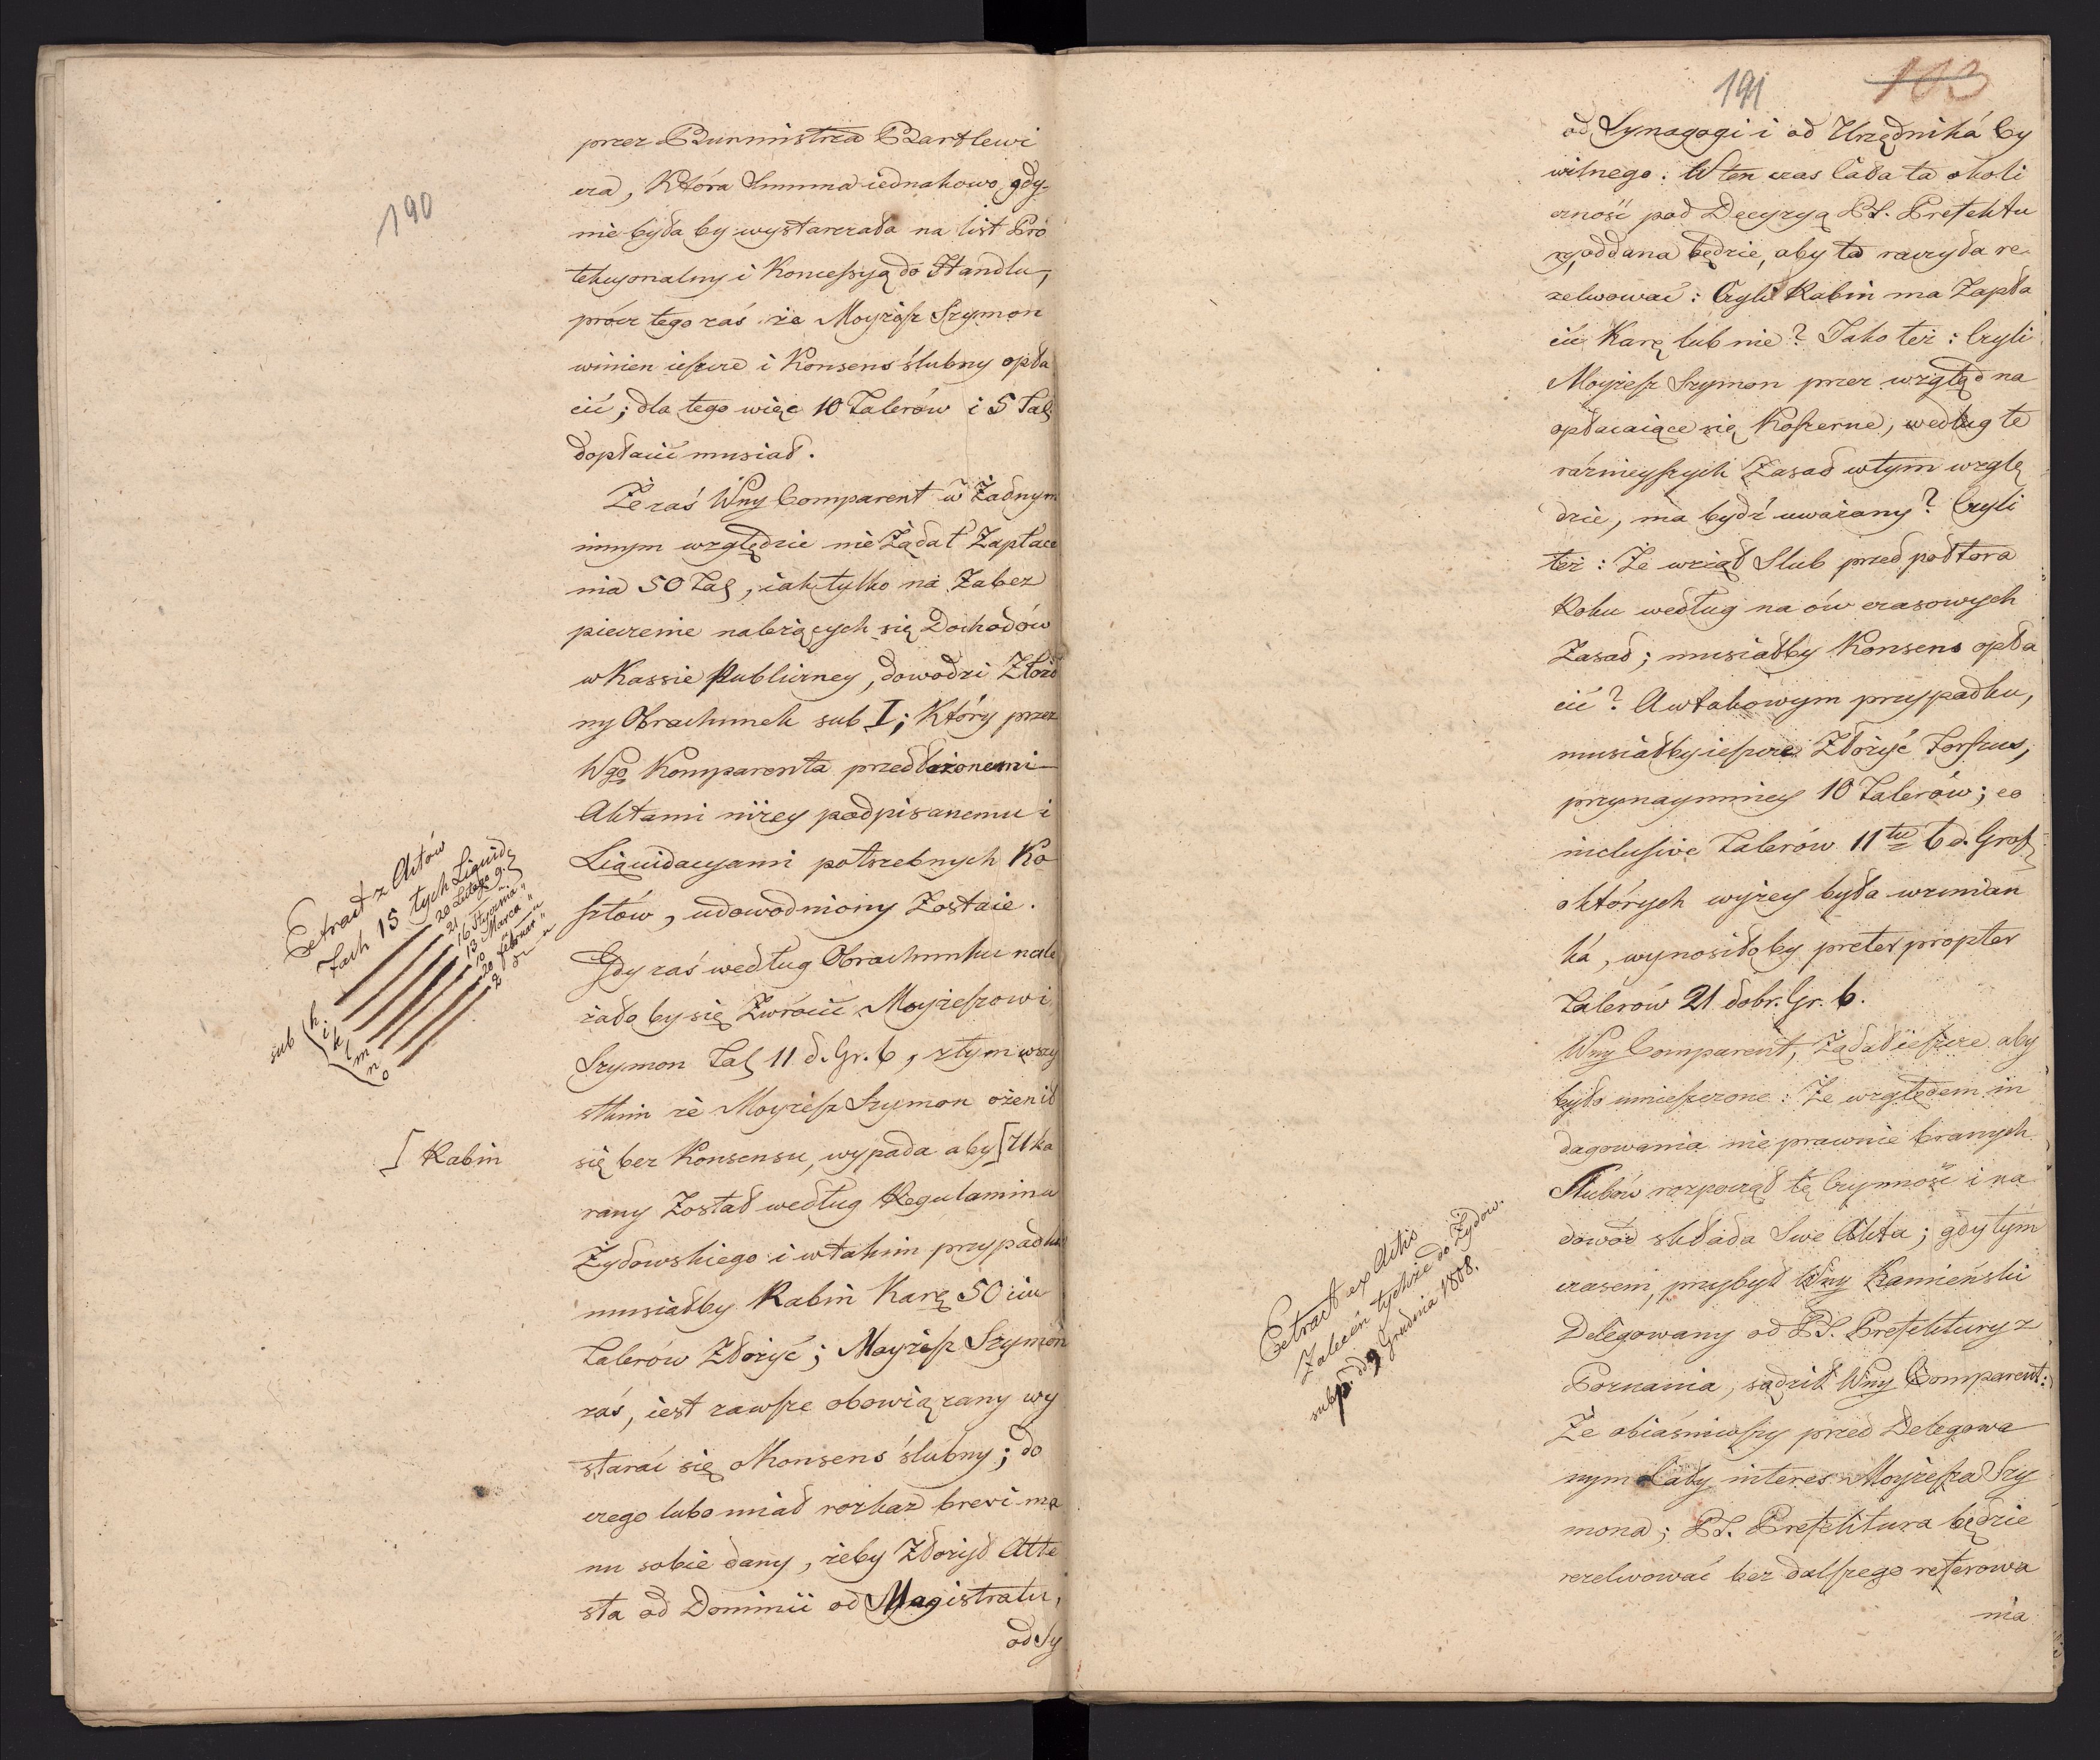 190
przez Burmistrza Bartlewi
cza, Która Summa iednakowo gdy-
nie była by wystarczała na list Pro
tekcyonalny i Koncessyą do Handlu,
prócz tego zaś że Moyżesz Szymon
winien ieszcze i Konsens ślubny opła
cić; dla tego więc 10 Talerów i 5 Tal:
dopłacić musiał.
Że zaś Wny Comparent w Żadnym
innym względzie nie Żądał Zapłace
nia 50 Tal, iak tylko na Zabez
pieczenie należących się Dochodów
w Kassie Publiczney, dowodzi Złożo
ny Obrachunek sub I; Który przez
Wgo Komparenta przedłożonemi
Aktami niżey podpisanemu i
Liquidacyami potrzebnych Ko
sztów, udowodniony Zostaie.
Gdy zaś według Obrachunku nale
żało by się Zwrócić Moyżeszowi
Szymon Tal 11 d. Gr. 6, z tym wszy
stkim że Moyżesz Szymon ożenił
się bez Konsensu, wypada aby [Uka
rany Został według Regulaminu
Żydowskiego i w takim przypadku
musiałby Rabin Karę 50ciu
Talerów Złożyć; Moyżesz Szymon
zaś, iest zawsze obowiązany wy
starać się o Konsens ślubny; do
czego lubo miał rozkaz brevi ma
nu sobie dany, żeby Złożył Atte
sta od Dominii od Magistratu,
od Sy
Extract z Aktów
Zach 15 tych Liquid
20 Lutego 9.
21 "
16 Stycznia "
13 Marca "
10 "
20 februar "
2
sub h. i k l m n o
[ Rabin
191
103
od Synagogi i od Urzędnika Cy
wilnego. W ten czas Cała ta okoli
czność pod Decyzyą PS. Prefektu
ry, oddana będzie, aby ta raczyła re
zelwować: Czyli Rabin ma Zapła
cić Karę lub nie? Jako też: Czyli
Moyżesz Szymon przez wzgląd na
opłacaiące się Koszerne, według te
raźnieyszych Zasad w tym wzglę
dzie, ma bydź uważany? Czyli
też: Że wziął Slub przed półtora
Roku według na ów czasowych
Zasad; musiałby Konsens opła
cić? A w takowym przypadku,
musiałby ieszcze Złożyć Forszus,
przynaymniey 10 Talerów; co
inclusive Talerów 11tu 6 d. Grosz
o których wyżey była wzmian
ka, wynosiłoby preter propter
Talerów 21 dobr. Gr. 6.
Wny Comparent, Żądał ieszcze aby
było umieszczone: Że względem in
dagowania nie prawnie branych
Slubów rozpoczął tę Czynność i na
dowód składa Swe Akta; gdy tym
czasem, przybył Wny Kamieński
Delegowany od PS. Prefektury z
Poznania, sądził Wny Comparent:
Że obiaśniwszy przed Delegowa
nym Cały interes Moyżesza Szy
mona; PS. Prefektura będzie
rezelwować bez dalszego referowa
nia
Extract ex Actis
Zaleceń tychże do Żydów.
sub p. dd 9 Grudnia 1808.